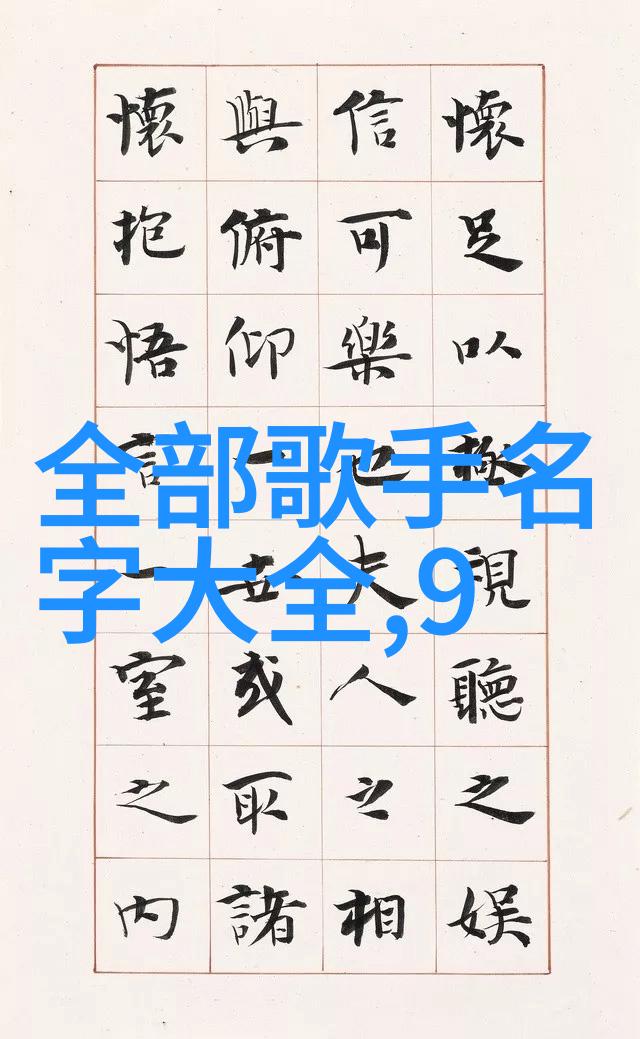 懷足以極視聽之娛
信可樂也夫人之相
與俯仰一世或取諸
懷抱悟言一室之內
全部歌手名
字大全,9